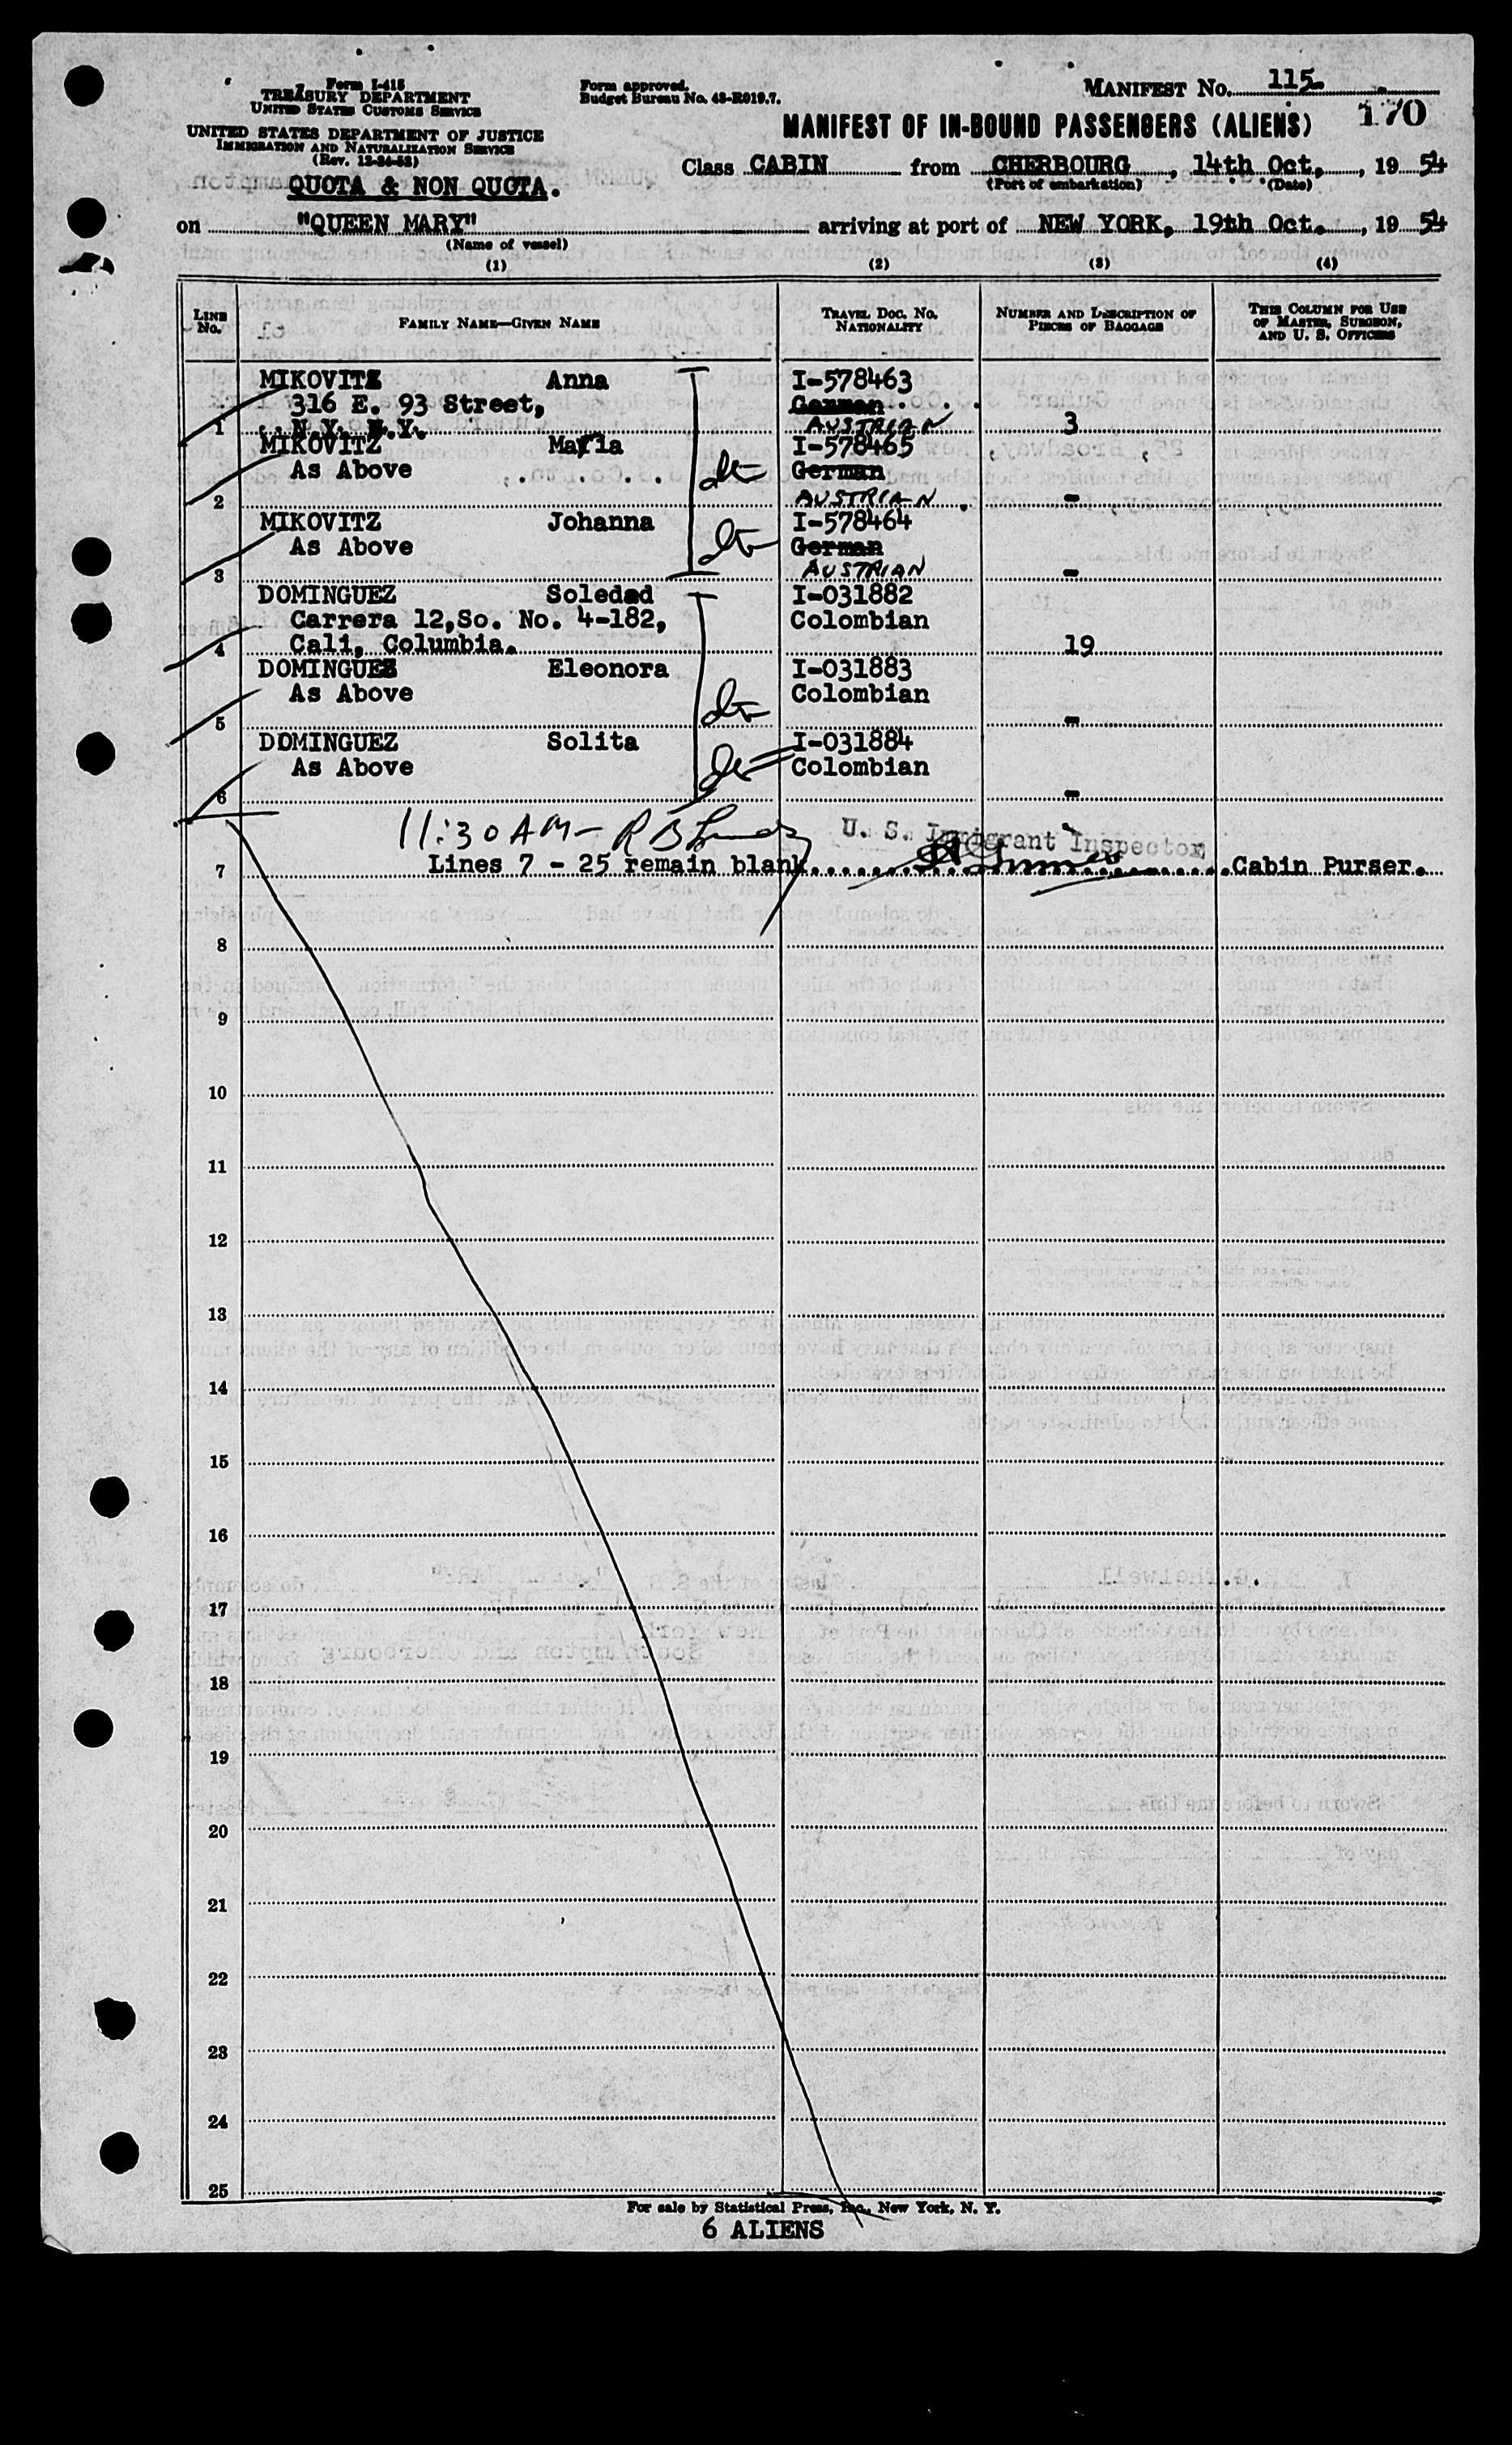 Form I-415
TREASURY DEPARTMENT
UNITED STATES CUSTOMS SERVICE
UNITED STATES DEPARTMENT OF JUSTICE
IMMIGRATION AND NATURALIZATION SERVICE
QUOTA & NON QUOTA.
Form approved.
Budget Bureau No. 43-R019.7.
MANIFEST No. 115
170
MANIFEST OF IN-BOUND PASSENGERS (ALIENS)
Class CABIN from CHERBOURG, 14th Oct., 19 54
(Port of embarkation) (Date)
on "QUEEN MARY" arriving at port of NEW YORK, 19th Oct., 19 54
(Name of vessel)
(1) (2) (3) (4)
LINE No. FAMILY NAME—GIVEN NAME TRAVEL DOC. NO. NATIONALITY NUMBER AND DESCRIPTION OF PIECES OF BAGGAGE THIS COLUMN FOR USE OF MASTER, SURGEON, AND U. S. OFFICERS
MIKOVITZ Anna I-578463
316 E. 93 Street, German
1 N.Y. N.Y. AUSTRIAN 3
MIKOVITZ Maria I-578465
As Above German
2 AUSTRIAN -
MIKOVITZ Johanna I-578464
As Above German
3 AUSTRIAN -
DOMINGUEZ Soledad I-031882
Carrera 12,So. No. 4-182, Colombian
4 Cali, Columbia. 19
DOMINGUEZ Eleonora I-031883
As Above Colombian
5 -
DOMINGUEZ Solita I-031884
As Above Colombian
6 -
11:30 AM - R B
U. S. Immigrant Inspector
7 Lines 7 - 25 remain blank. Cabin Purser.
8
9
10
11
12
13
14
15
16
17
18
19
20
21
22
23
24
25
For sale by Statistical Press, Inc., New York, N. Y.
6 ALIENS